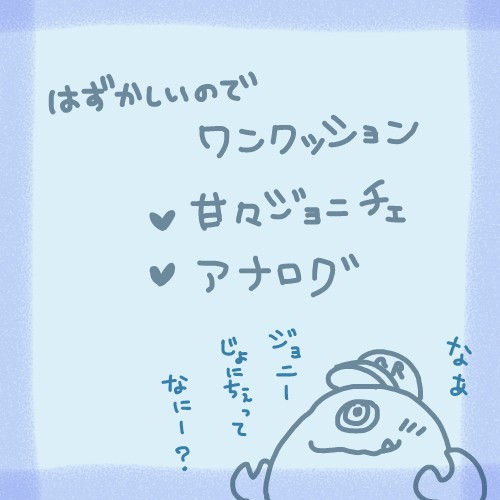 はずかしいので
ワンクッション
♥甘々ジョニチェ
♥アナログ
なぁ
ジョニー
じょにちぇって
なにー?